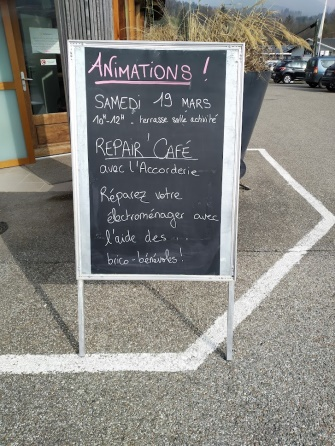 ANIMATIONS !
SAMEDI 19 MARS
10H-12H . terrasse salle activité
REPAIR' CAFÉ
avec l'Accorderie
Réparez votre
électroménager avec
l'aide des ...
brico-bénévoles !